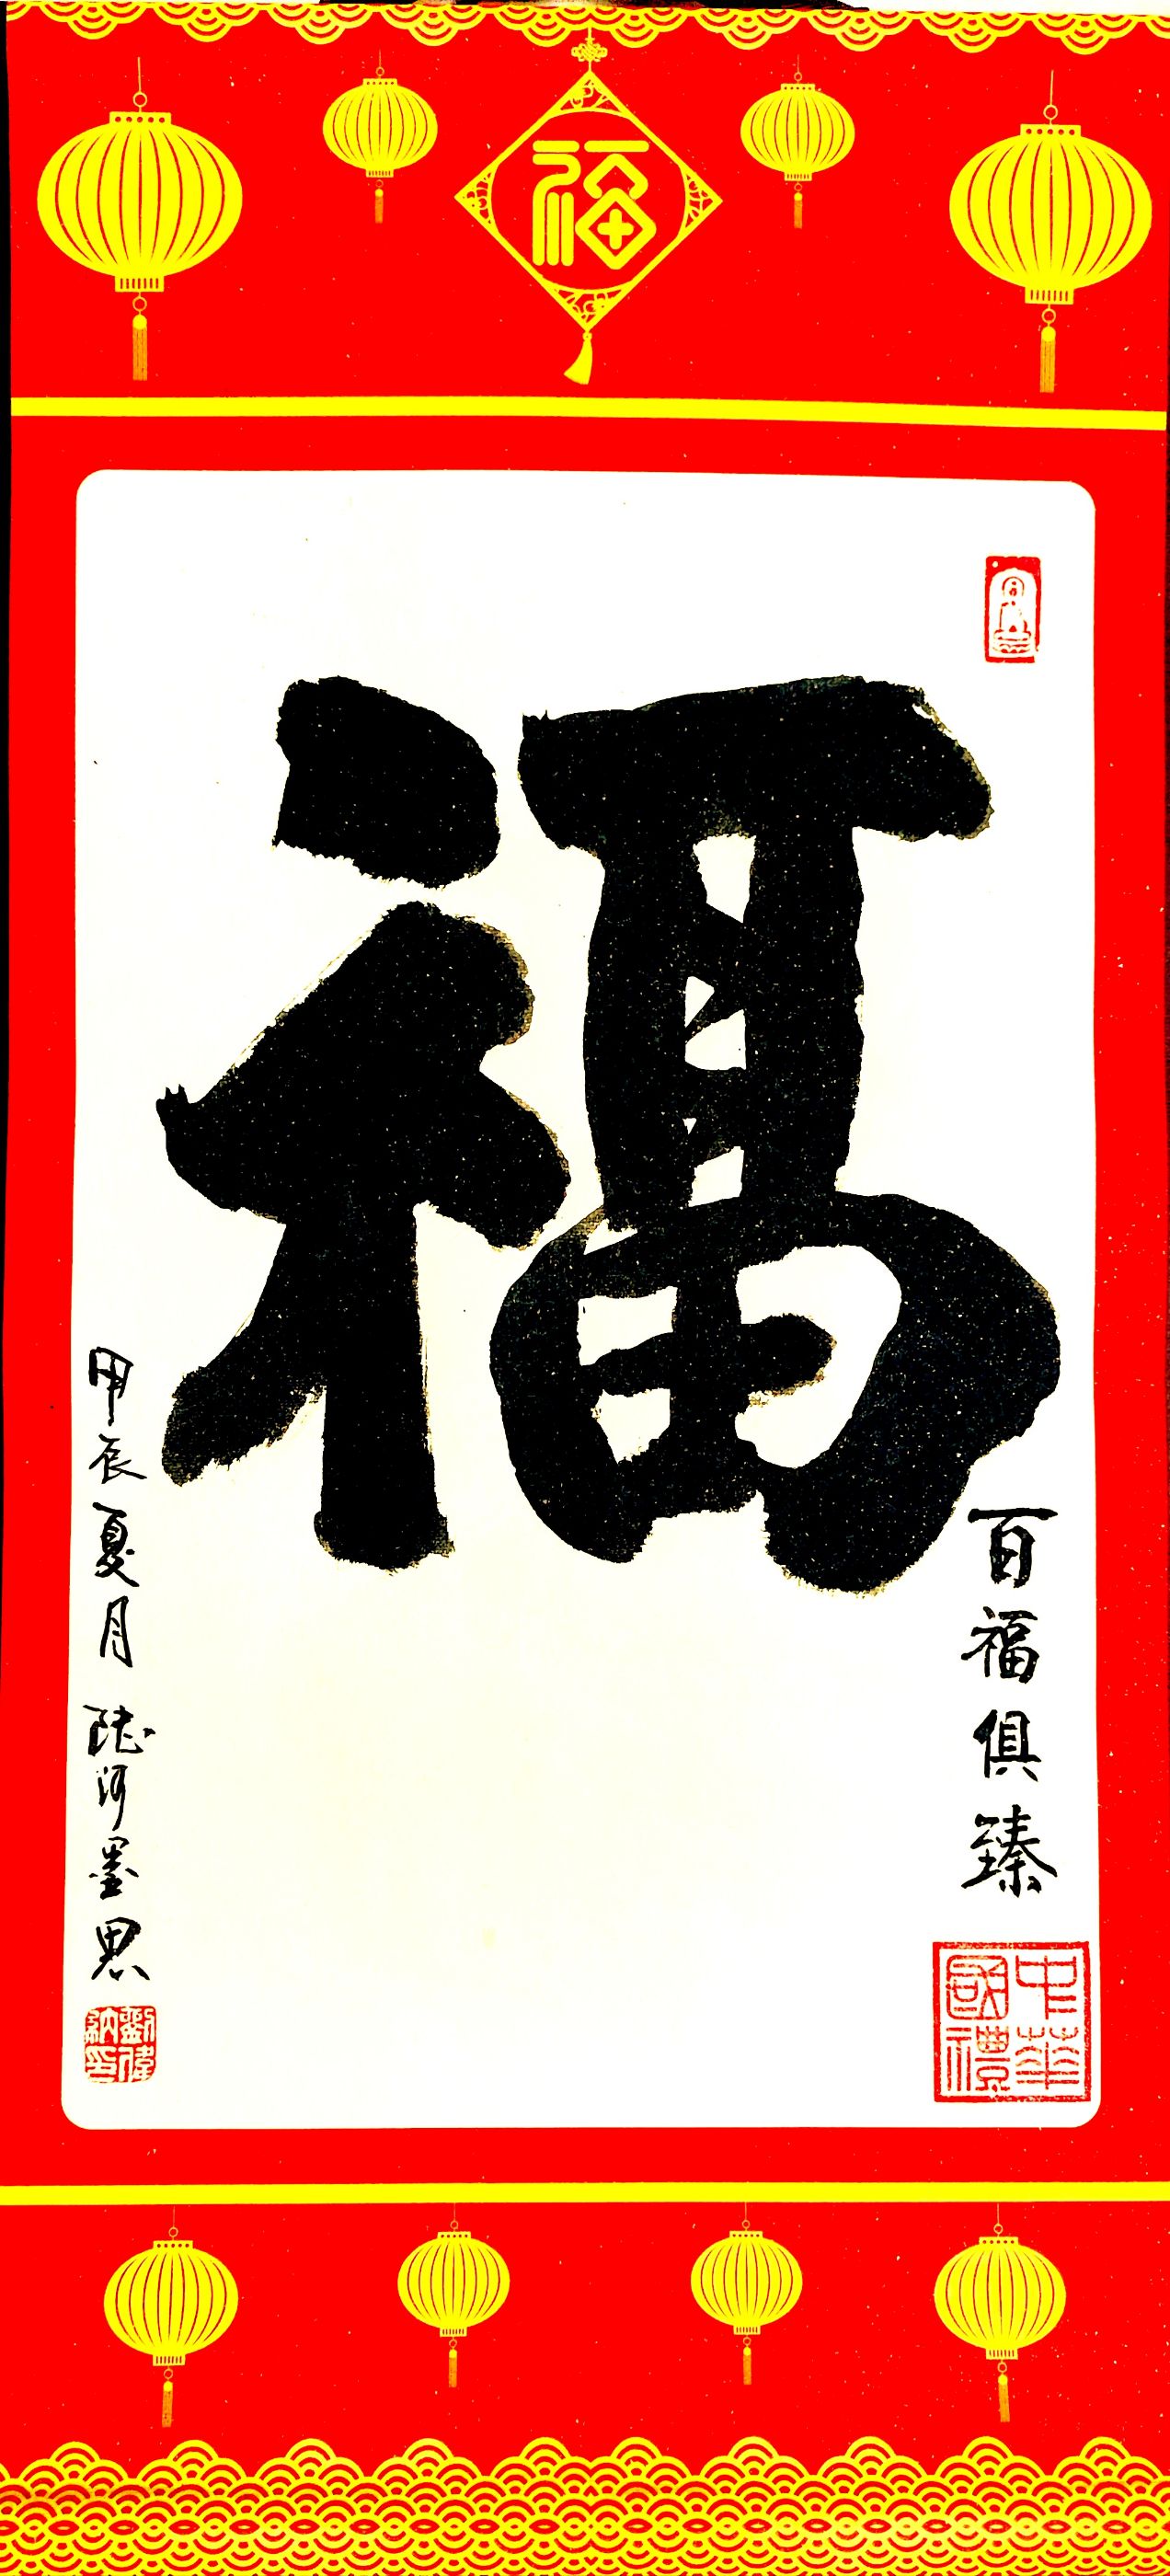 福
福
百福俱臻
中華國禮
甲辰夏月 河墨
劉偉納印